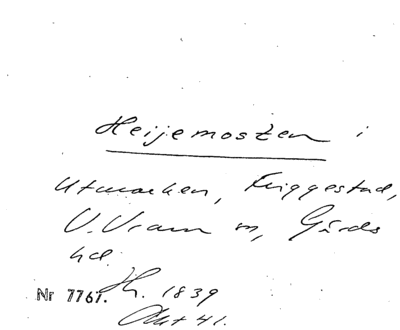 Heijemossen i
Utmarken, Friggestad,
V. Vram sn, Gärds
hd.
Nr 7761. Th. 1839
Akt 41.